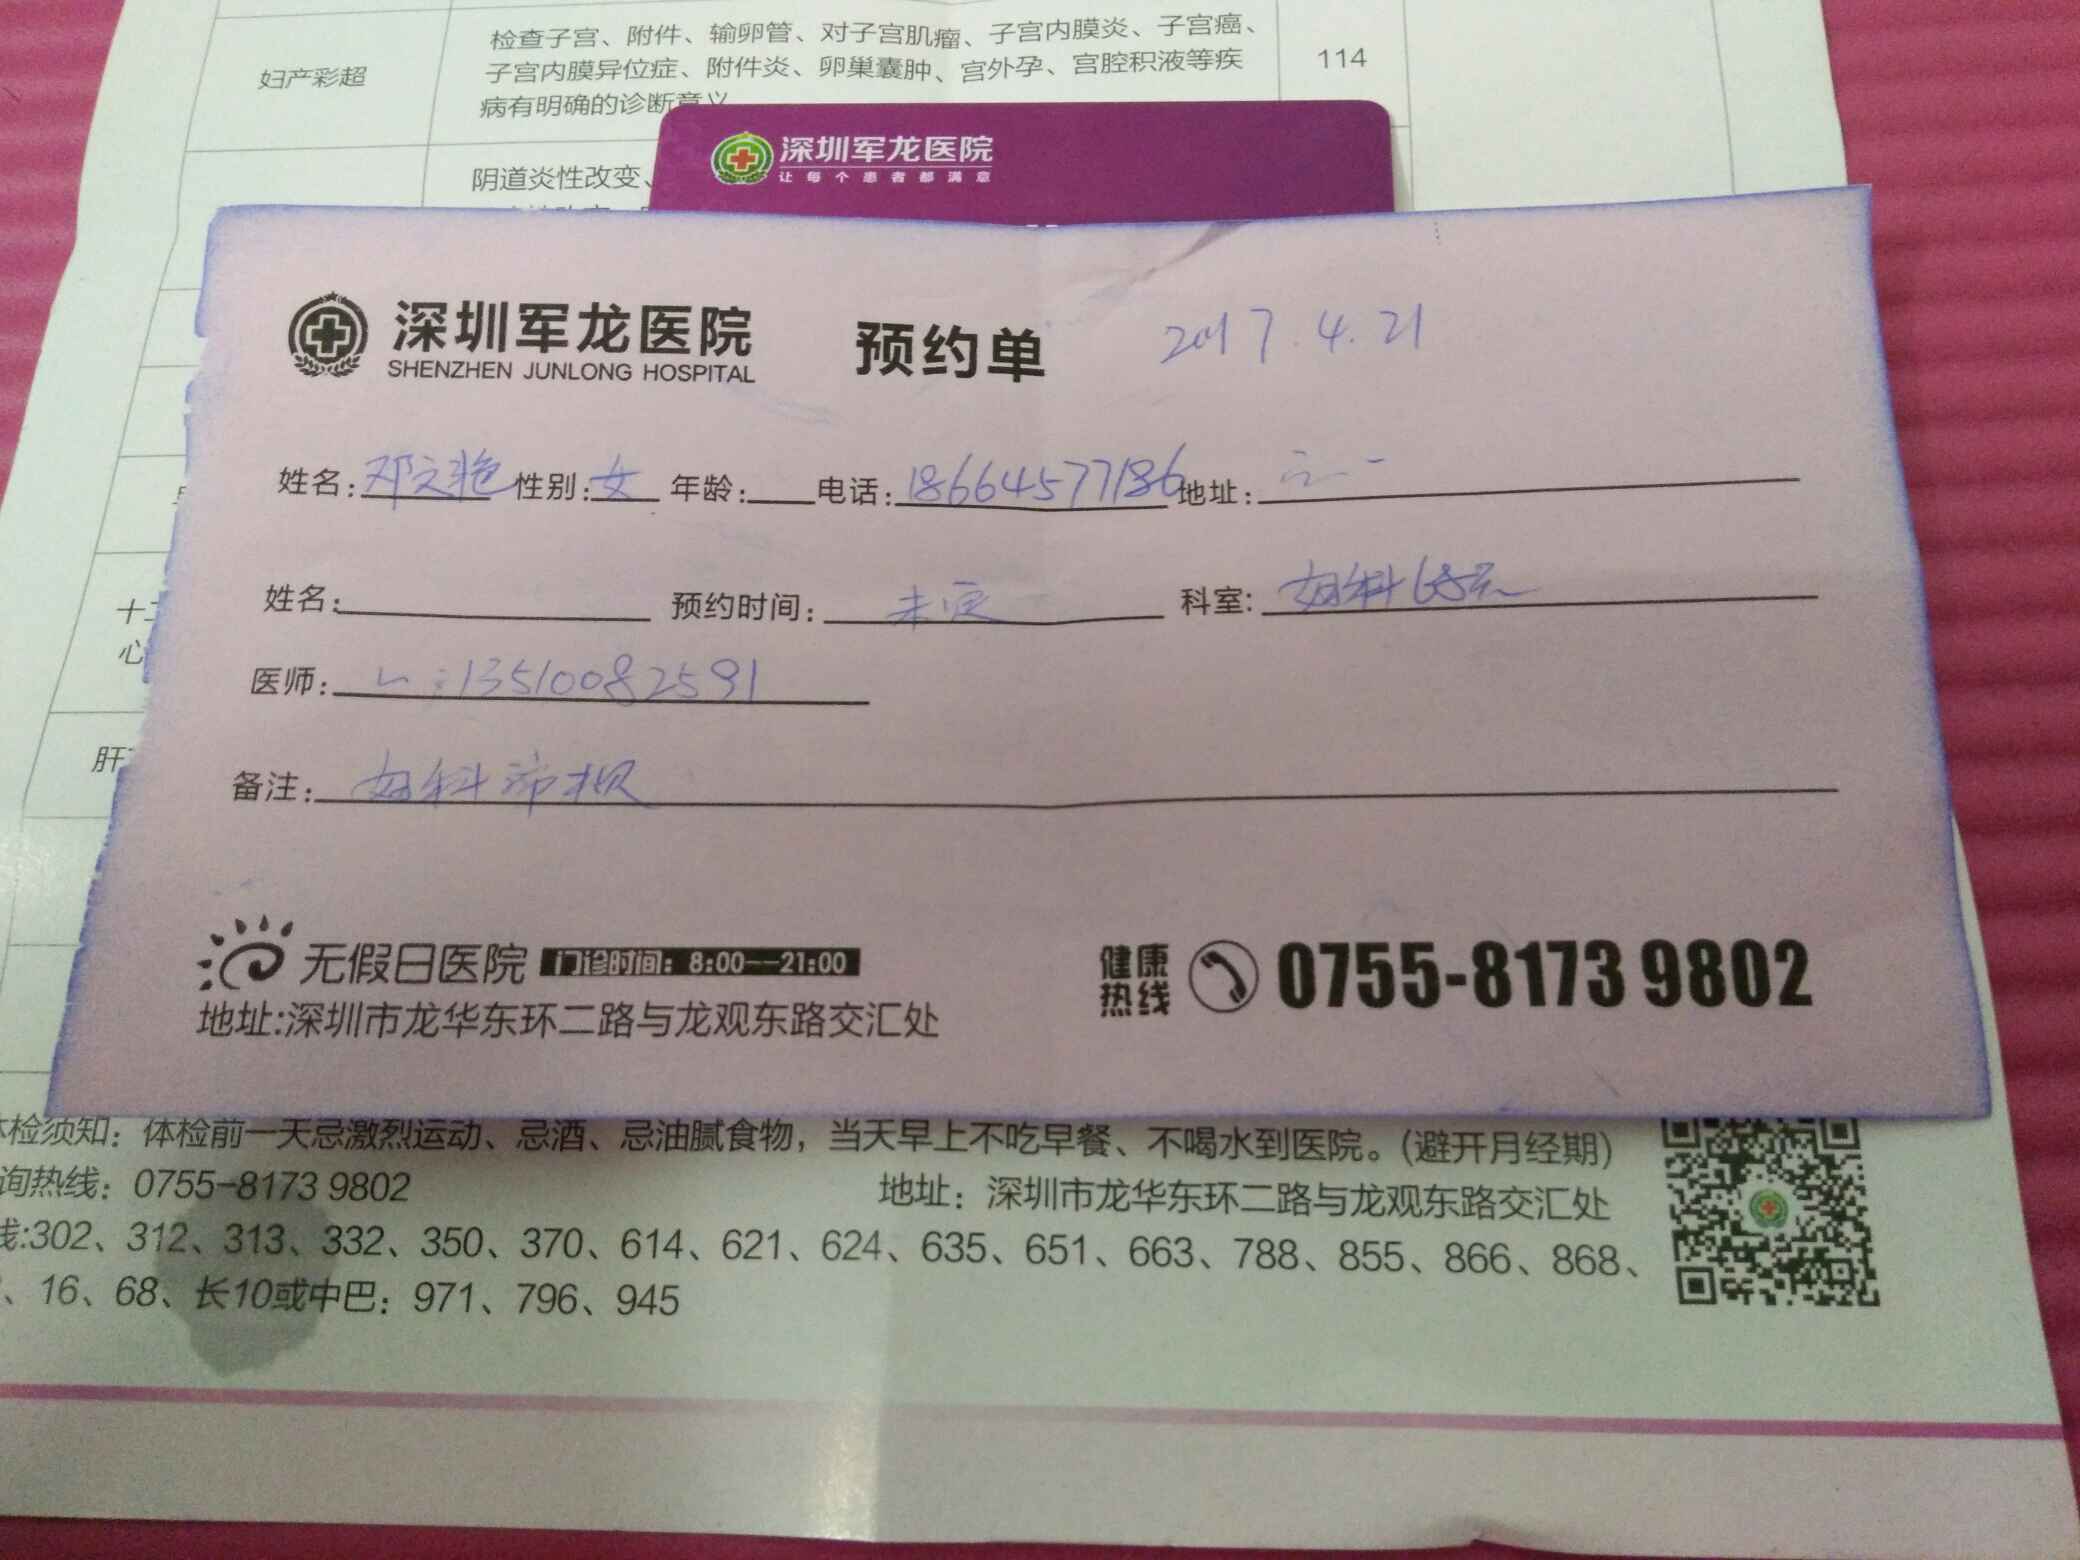 妇产彩超
检查子宫、附件、输卵管、对子宫肌瘤、子宫内膜炎、子宫癌、
子宫内膜异位症、附件炎、卵巢囊肿、宫外孕、宫腔积液等疾
病有明确的诊断意义
114
阴道炎性改变、
深圳军龙医院
让每个患者都满意
深圳军龙医院
SHENZHEN JUNLONG HOSPITAL
预约单 2017.4.21
姓名:邓文艳 性别:女 年龄: 电话:18664577186 地址:
姓名: 预约时间:未定 科室:妇科
医师: :13510082591
备注:妇科
十二
心
肝
无假日医院 门诊时间:8:00--21:00
地址:深圳市龙华东环二路与龙观东路交汇处
健康热线 0755-8173 9802
体检须知:体检前一天忌激烈运动、忌酒、忌油腻食物,当天早上不吃早餐、不喝水到医院。(避开月经期)
询热线:0755-8173 9802 地址:深圳市龙华东环二路与龙观东路交汇处
线:302、312、313、332、350、370、614、621、624、635、651、663、788、855、866、868、
、16、68、长10或中巴:971、796、945